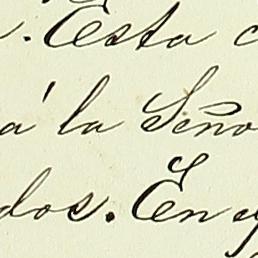 . Esta
á la Seño
dos. En